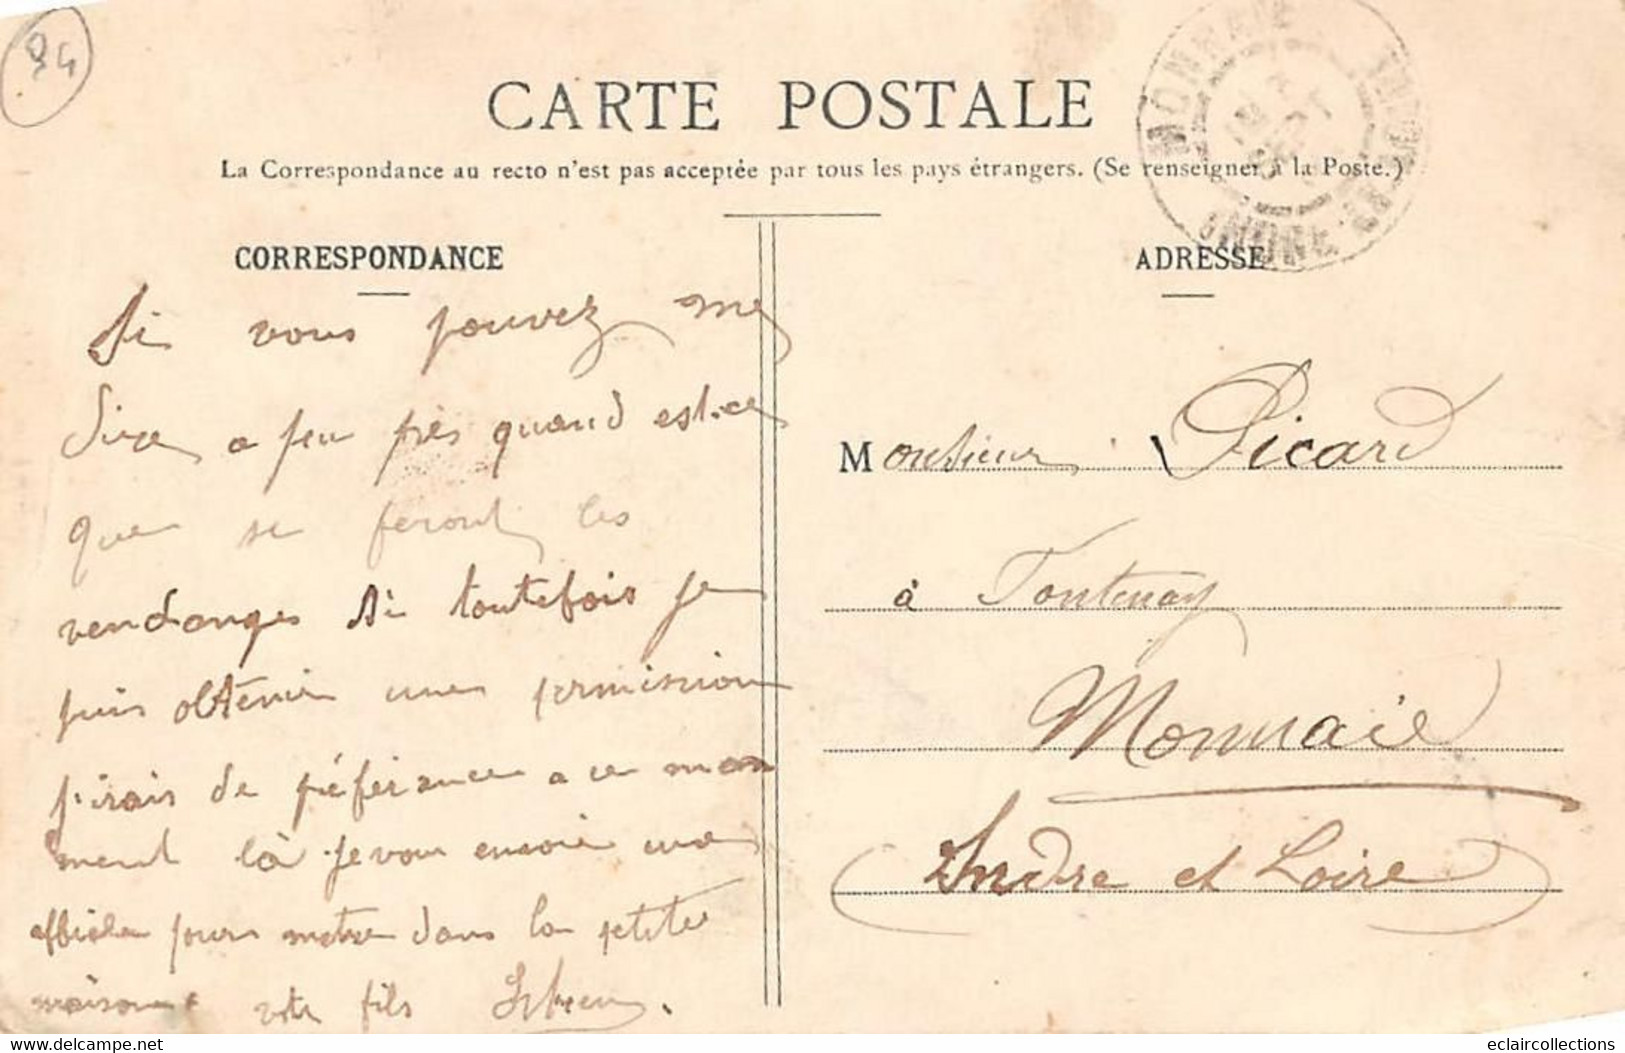 94
CARTE POSTALE
La Correspondance au recto n'est pas acceptée par tous les pays étrangers. (Se renseigner à la Poste.)
MONNAIE
INDRE ET LOIRE
CORRESPONDANCE
Si vous pouvez me
dire a peu près quand est-ce
que se feront les
vendanges si toutefois je
puis obtenir une permission
j'irais de préférance a ce mo
ment là je vous envoie une
affiche pours metre dans la petite
maison votre fils
ADRESSE
Monsieur Picard
à Fontenay
Monnaie
Indre et Loire
Delcampe.net
eclaircollections